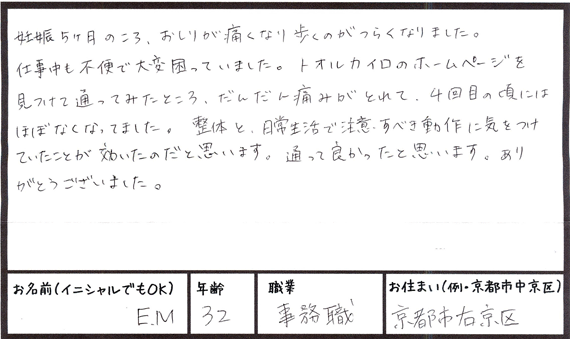 妊娠5ヶ月のころ、おしりが痛くなり歩くのがつらくなりました。
仕事中も不便で大変困っていました。トオルカイロのホームページを
見つけて通ってみたところ、だんだん痛みがとれて、4回目の頃には
ほぼなくなってました。整体と、日常生活で注意すべき動作に気をつけ
ていたことが効いたのだと思います。通って良かったと思います。あり
がとうございました。
お名前(イニシャルでもOK) 年齢 職業 お住まい(例・京都市中京区)
E.M 32 事務職 京都市右京区